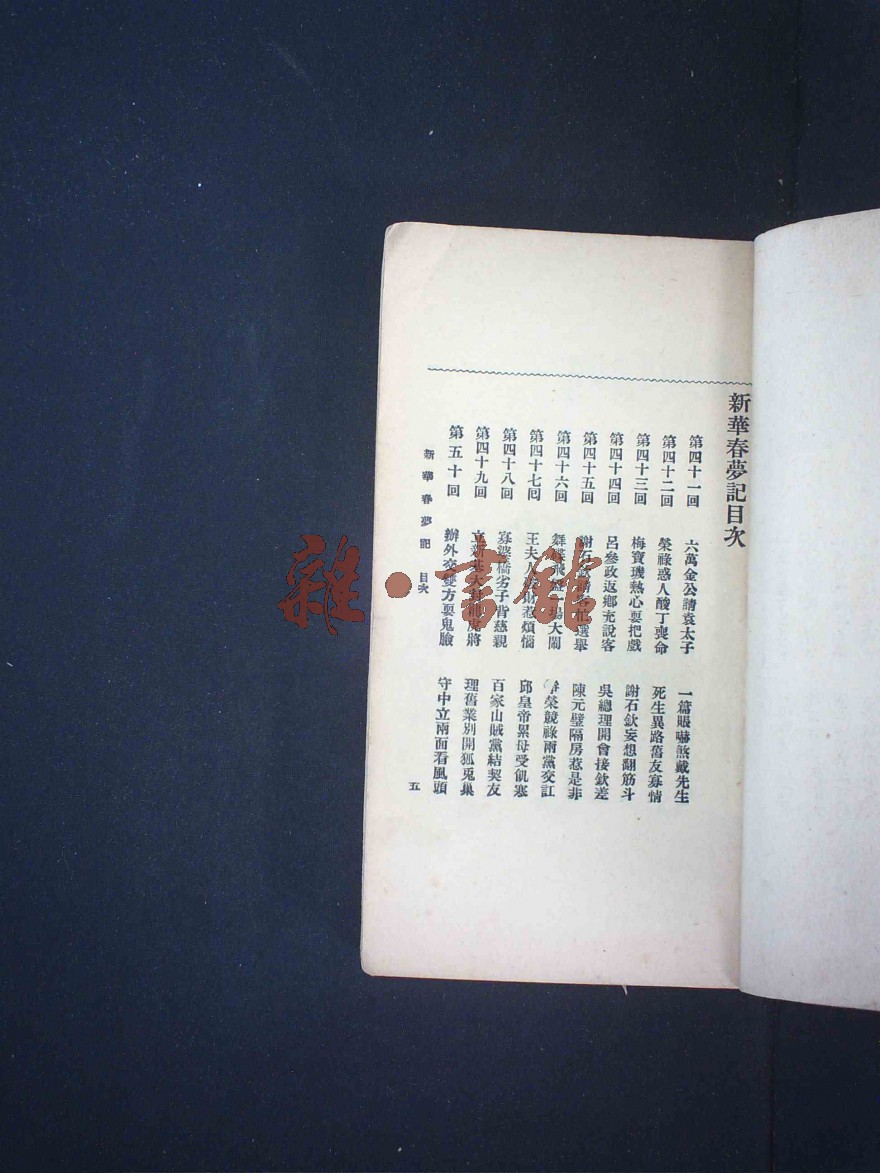 新華春夢記目次
第四十一回 六萬金公請袁太子 一篇賬嚇煞戴先生
第四十二回 榮祿惑人酸丁喪命 死生異路舊友寡情
第四十三回 梅寶璣熱心耍把戲 謝石欽妄想翻筋斗
第四十四回 呂叅政返鄉充說客 吳總理開會接欽差
第四十五回 謝石 選舉 陳元璧隔房惹是非
第四十六回 舞 塲大鬧 榮競祿兩黨交訌
第四十七回 王夫人 惹煩惱 邱皇帝累母受飢寒
第四十八回 寡婆橋劣子背慈親 百家山賊黨結契友
第四十九回 立新 大 虎將 理舊業別開狐兎巢
第五十回 辦外交雙方耍鬼臉 守中立兩面看風頭
新華春夢記 目次
五
雜·書館